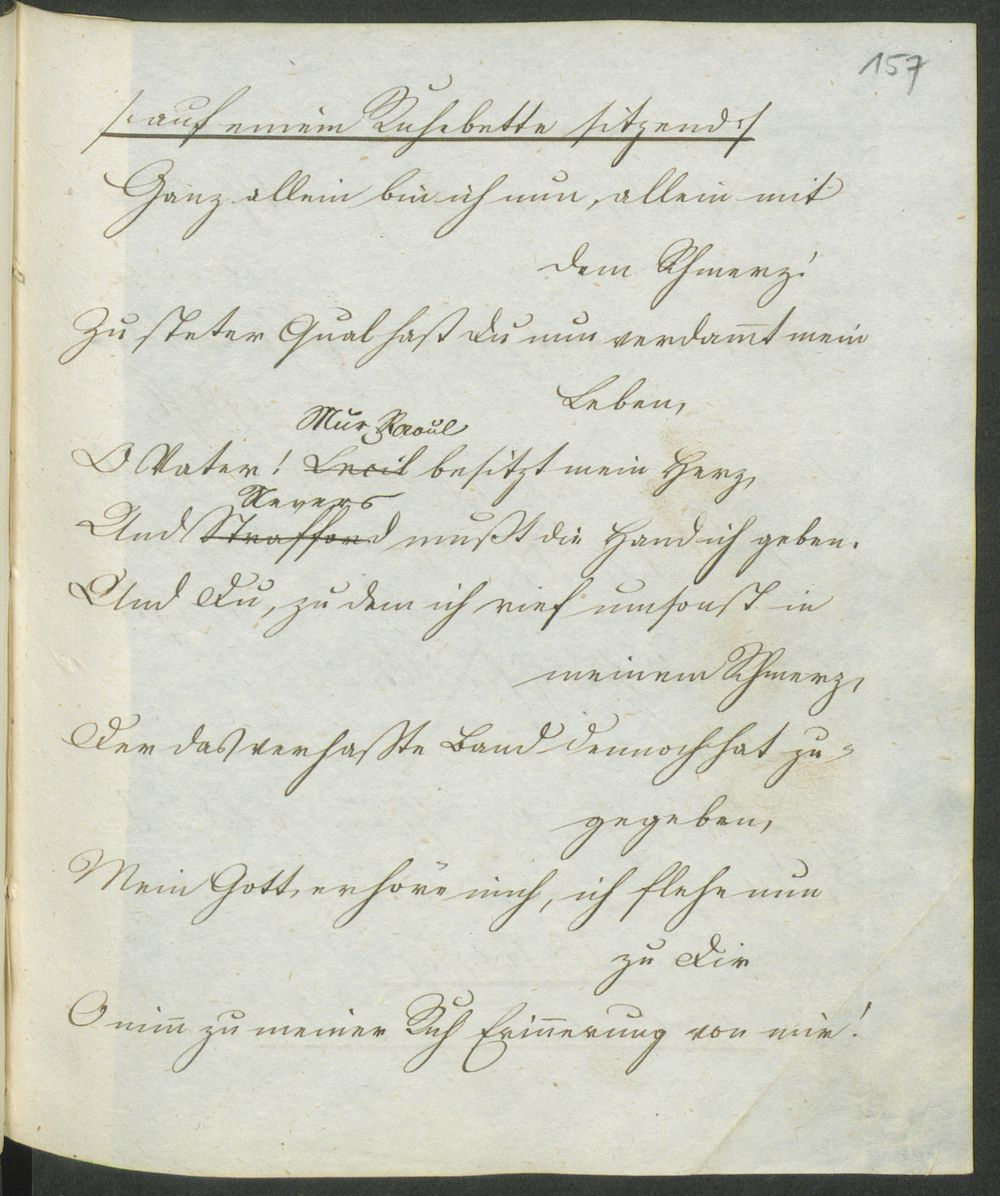 157
/: auf einem Ruhebette sitzend :/
Ganz allein bin ich nun, allein mit
dem Schmerz!
Zu steter Qual hast Du nun verdam̅t mein
Leben,
Nur Raoul
O Vater! Cecil besitzt mein Herz,
Nevers
Und Strafford mußt die Hand ich geben.
Und Du, zu dem ich rief umsonst in
meinem Schmerz,
Der das verhaßte Band dennoch hat zu-
gegeben,
Mein Gott, erhöre mich, ich flehe nun
zu Dir
O nim̅ zu meiner Ruh Erin̅erung von mir!